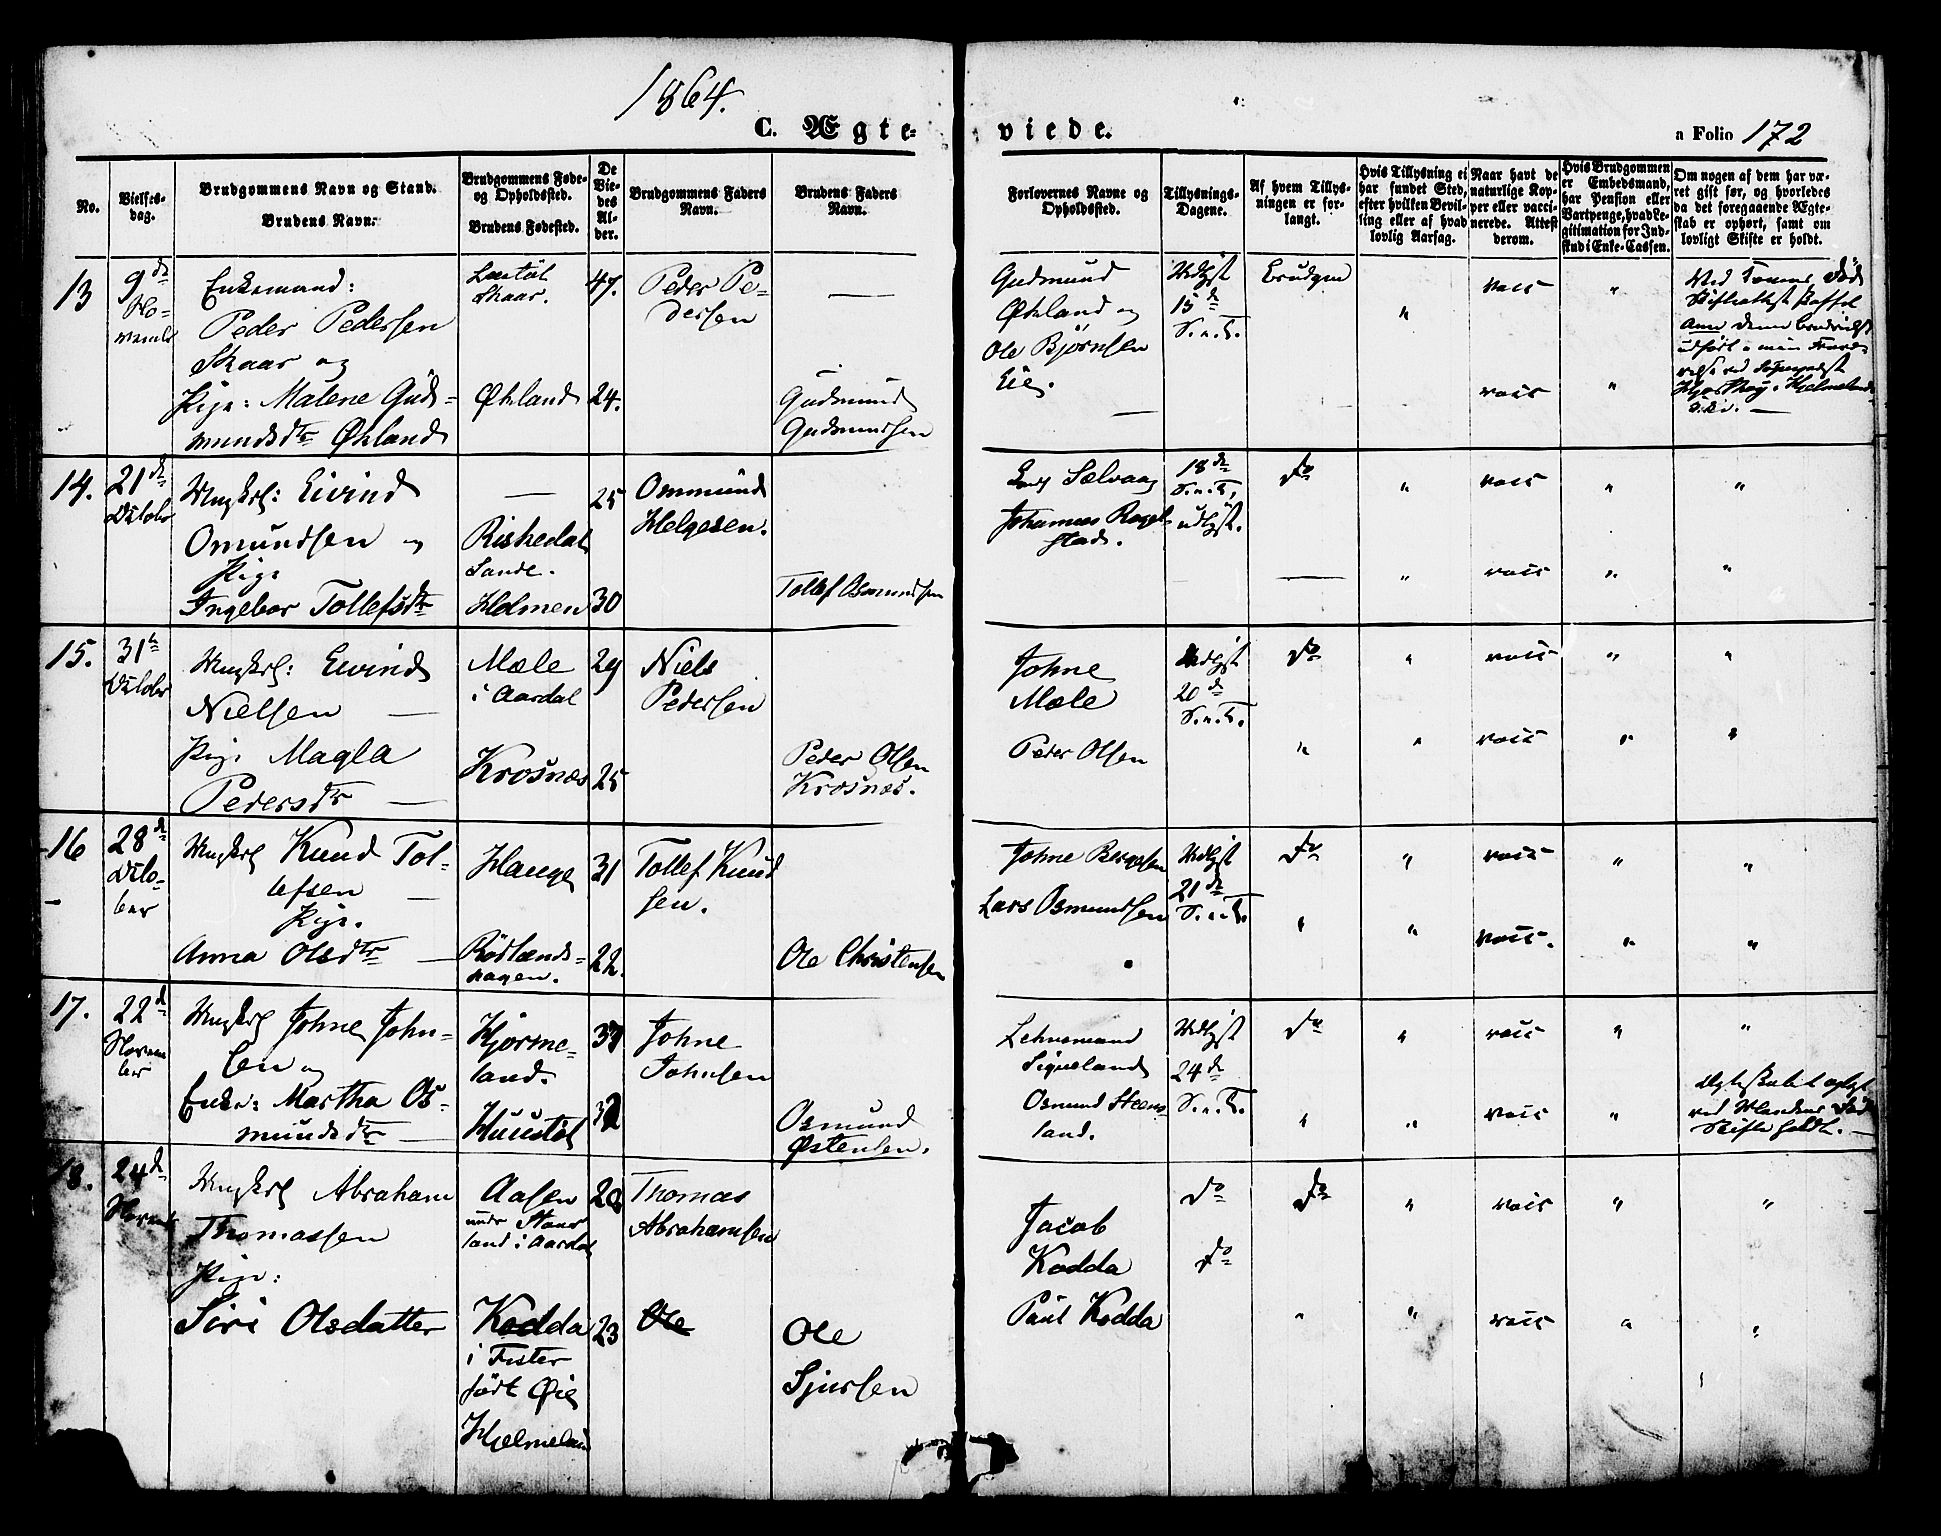 1864.
C. Ægte-
viede.
n Folio 172
No.
Vielses-
dag.
Brudgommens Navn og Stand.
Brudens Navn.
Brudgommens Føde-
og Opholdssted.
Brudens Fødested.
De
Vie-
des
Al-
der.
Brudgommens Faders
Navn.
Brudens Faders
Navn.
Forlovernes Navne og
Opholdssted.
Tillysnings-
Dagene.
Af hvem Tillys-
ningen er for-
langt.
Hvis Tillysning ei
har fundet Sted,
efter hvilken Bevil-
ling eller af hvad
lovlig Aarsag.
Naar havt de
naturlige Kop-
per eller vacci-
nerede. Attest
derom.
Hvis Brudgommen
er Embedsmand,
har Pension eller
Vartpenge, hvad Le-
gitimation for Ind-
skud i Enke-Cassen.
Om nogen af dem har væ-
ret gift før, og hvorledes
da det foregaaende Ægte-
skab er ophørt, samt om
lovligt Skifte er holdt.
13
9de
No-
vembr
Enkemand:
Peder Pedersen
Skaar og
Pige: Malene Gud-
mundsdtr Økland
Skaar.
Økland
47.
24.
Peder Pe-
dersen
—
Gudmund
Gudmundsen
Gudmund
Økland og
Ole Björnsen
Eie.
—
Udlyst
15de
S. e. T.
Brudgm
"
vacc
vacc
"
"
14.
21de
Octobr
Ungkrl: Eivind
Omundsen og
Pige
Ingebor Tollefsdtr
—
Riskedal
Sande.
Holmen
25
30
Ommund
Helgesen.
Tollef Osmundsen
Sælvaag
Johannes
18de
S. e. T.
udlyst.
Do
—
"
"
vacc
vacc
"
"
"
"
15.
31te
Octobr
Ungkrl: Eivind
Nielsen —
Pige Magla
Pedersdtr —
Mæle
i Aardal
Krosnæs
29
25
Niels
Pedersen
Peder Olsen
Krosnæs.
Johne
Mæle
Peder Olsen
Udlyst
20de
S. e. T.
Do
"
"
"
vacc
vacc
"
"
"
"
16
28de
Octo-
ber
Ungkrl Knud Tol-
lefsen —
Pige.
Anna Olsdtr —
Hauge
Rödlands-
hagen.
31
22.
Tollef Knud
sen.
Ole Christensen
Johne Bergesen
Lars Osmundsen
Udlyst
21de
S. e. T.
Do
"
"
"
vacc
vacc.
"
"
"
"
17.
22d
Novem
ber
Ungkrl Johne John-
sen og
Enke: Martha Os-
mundsdtr —
Hjorme-
land.
Huustöl
Johne
Johnsen
Osmund
Østensen.
Lehnsmand
Sigveland
Osmund Steens
land.
Udlyst
24de
S. e. T.
Do
"
"
"
vacc
vacc
"
"
"
Ægteskabet oplyst
ved Mandens Död
Skifte holdt. —
18.
24d
Novemb
Ungkrl Abraham
Thomassen
Pige:
Siri Olsdatter
Aasen
i Aardal
Kodda
i Fister
født Øie
Hjelmeland
28
23
Thomas
Abrahamsen
Ole
Ole
Sjursen
Jacob
Kodda
Paul Kodda
Do
Do
Do
"
"
"
vacc
vacc
"
"
"
"